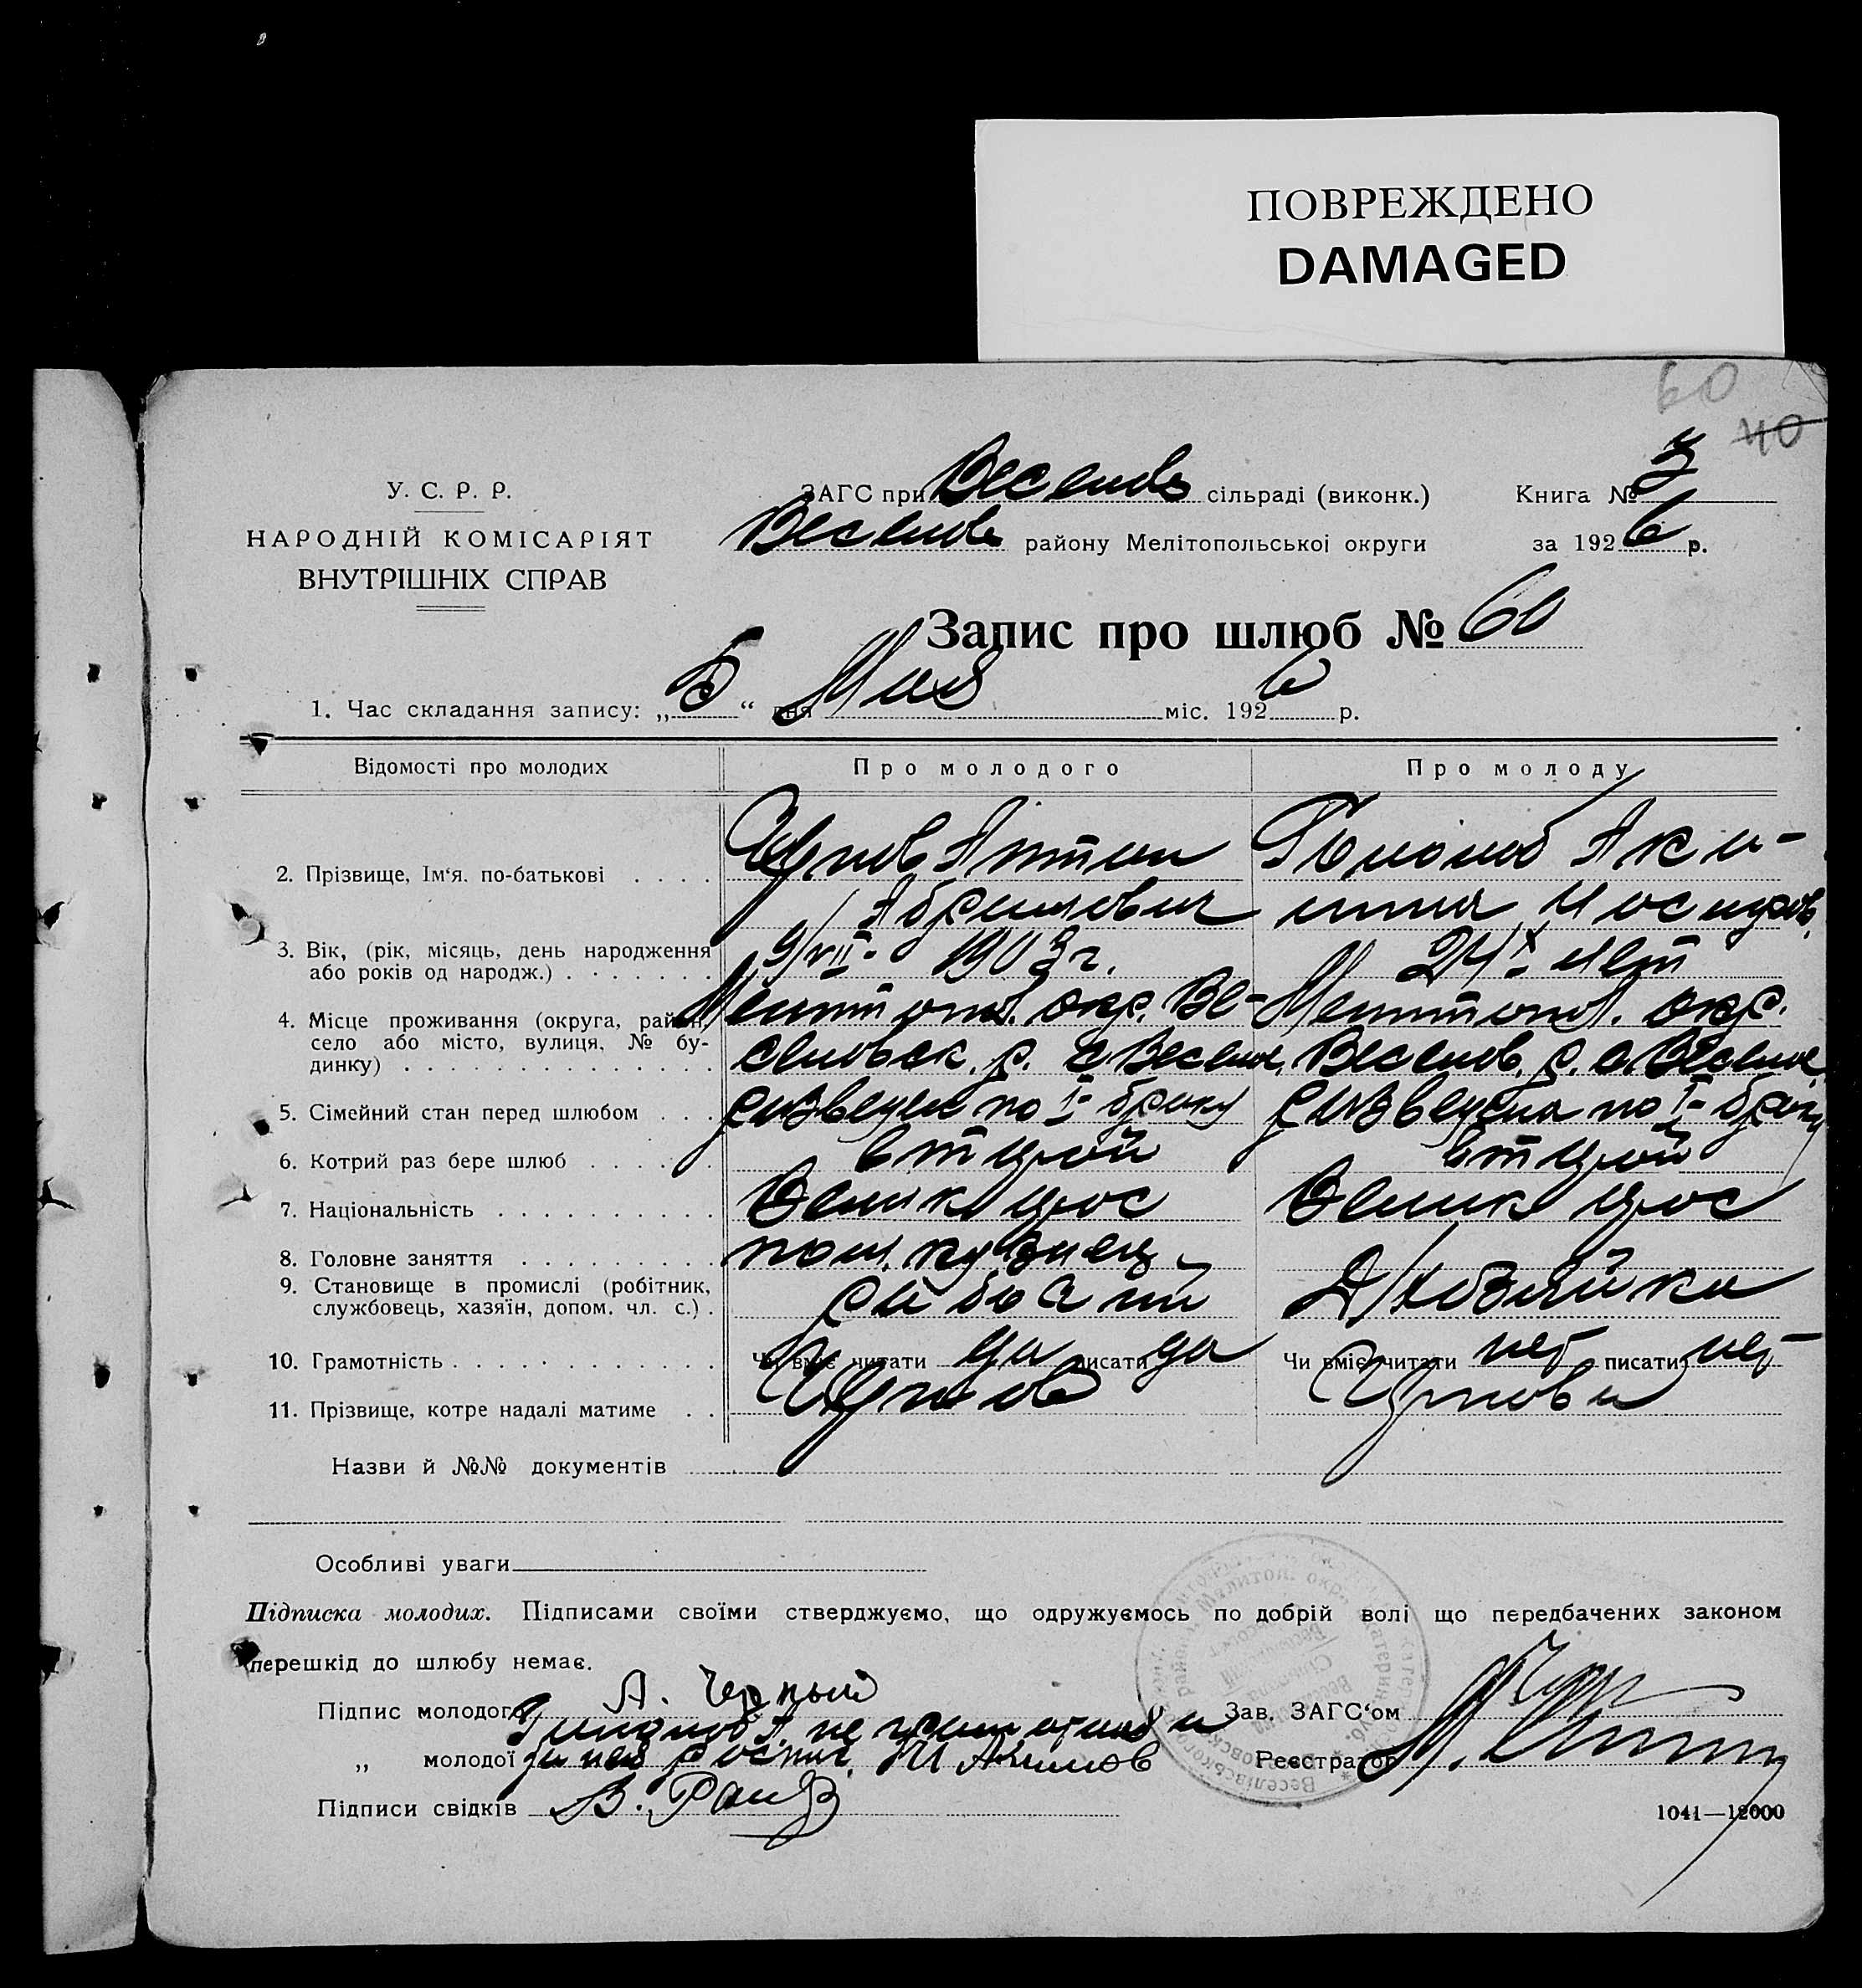 ПОВРЕЖДЕНО
DAMAGED
60
40
У. С. Р. Р.
НАРОДНІЙ КОМІСАРІЯТ
ВНУТРІШНІХ СПРАВ
ЗАГС при Веселов сільраді (виконк.)
Книга № 3
Веселов району Мелітопольськоі округи
за 1926 р.
Запис про шлюб № 60
1. Час складання запису: „5“ дня Мая міс. 1926 р.
Відомості про молодих
Про молодого
Про молоду
2. Прізвище, Ім‘я. по-батькові . . . .
Антон
Абрамович
Аки-
3. Вік, (рік, місяць, день народження
або років од народж.)
9/VII- 1903 г.
24 лет
4. Місце проживання (округа, район,
село або місто, вулиця, № бу-
динку)
Мелитопол. окр. Ве-
селовск. р. с Весело.
Мелитопол. окр.
Веселов. р. с. Веселое
5. Сімейний стан перед шлюбом
розведен по I- браку
розведена по I- браку
6. Котрий раз бере шлюб
второй
второй
7. Національність
Великорос
Великорос
8. Головне заняття
кузнец
9. Становище в промислі (робітник,
службовець, хазяїн, допом. чл. с.) .
рабочий
Д/хозяйка
10. Грамотність
Чи вміє читати да писати да
Чи вміє читати нет писати нет
11. Прізвище, котре надалі матиме
Чернов
Чернова
Назви й №№ документів
Особливі уваги
Підписка молодих. Підписами своїми стверджуємо, що одружуємось по добрій волі що передбачених законом
перешкід до шлюбу немає.
Підпис молодого А. Черный
не грамотная
„ молодої за нея роспис.
Підписи свідків В.
Зав. ЗАГС‘ом
Реєстратор
1041—12000